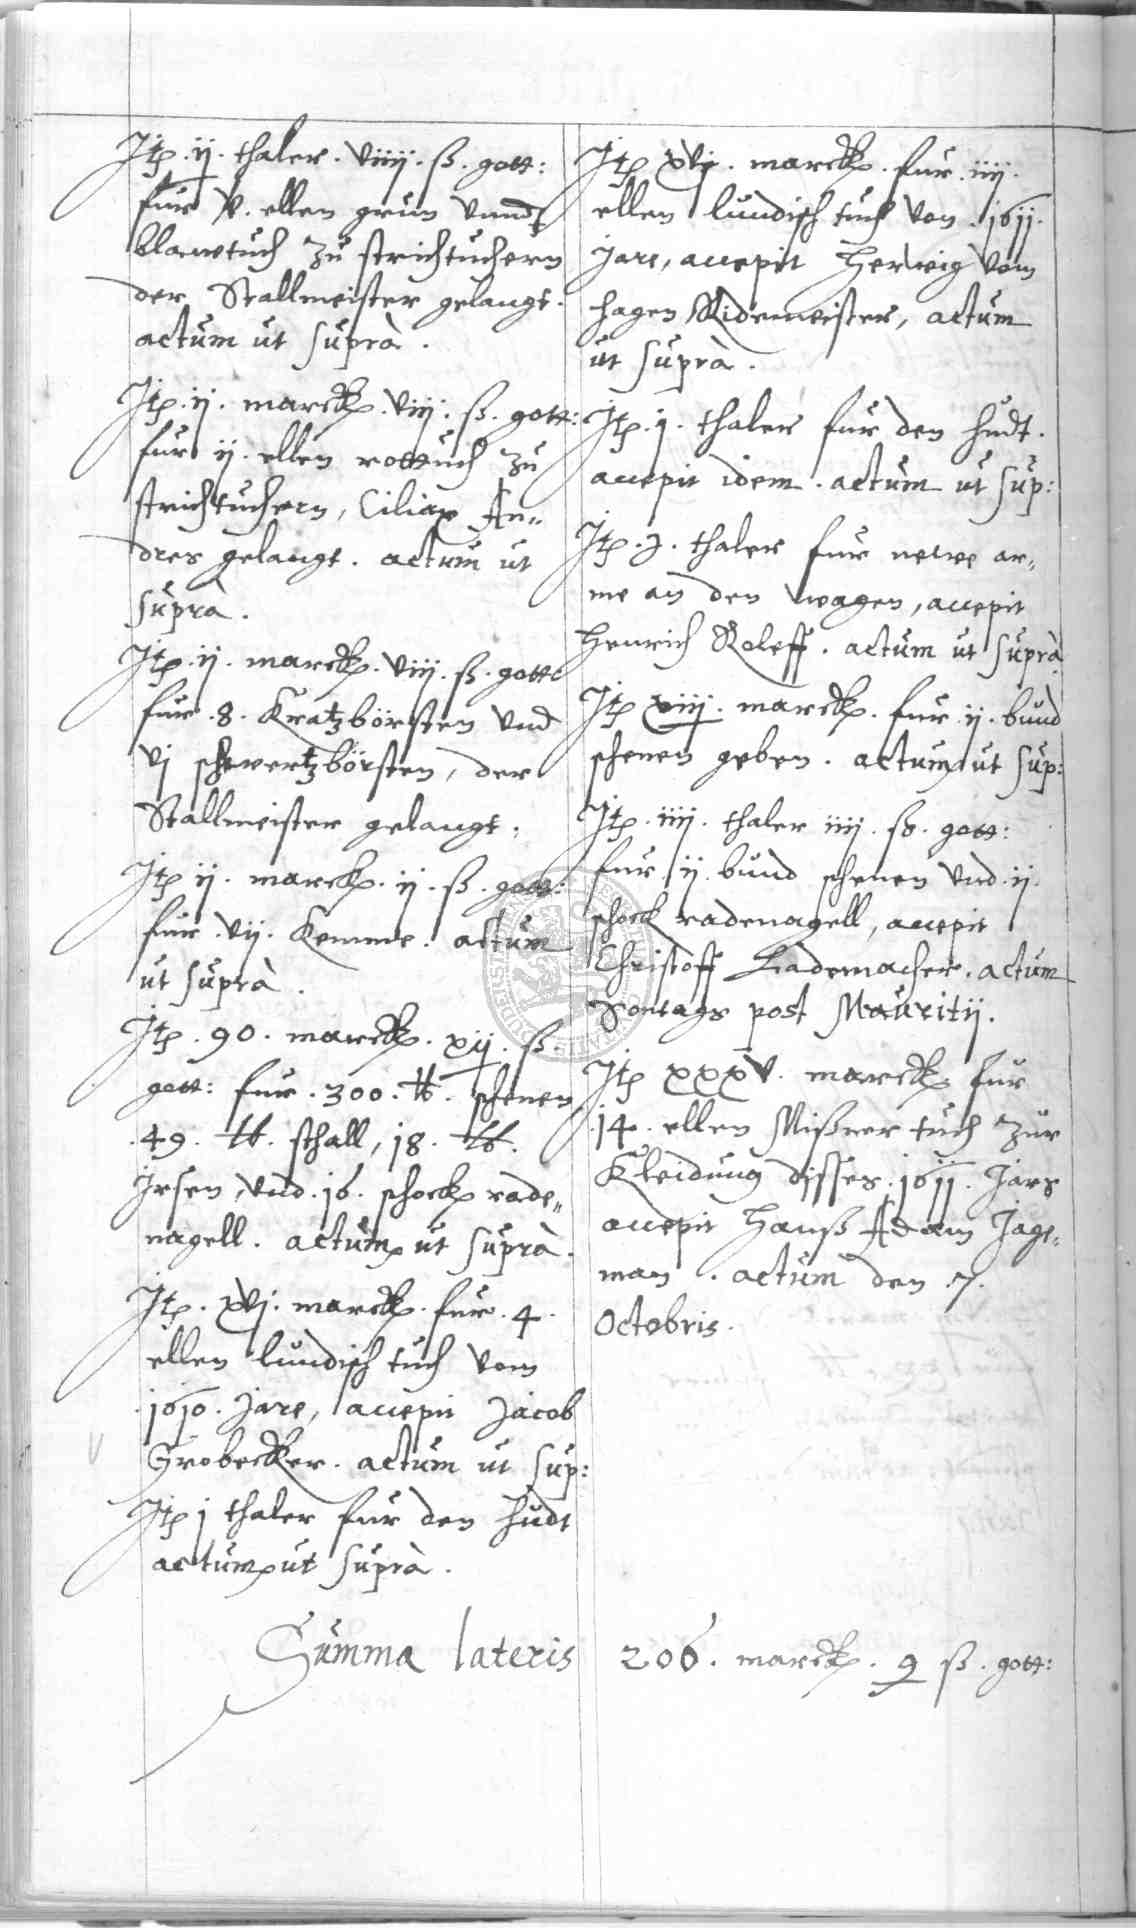 Jtem .ij. thaler . viiij . ß . gott:
fur v. ellen grun vnnd
blawtuch zu strichtuchern
der Stallmeister gelangt .
actum ut suprà .
Jtem .ij. marck . viij . ß . gott:
fur ij . ellen rottuch zu
strichtuchern, Ciliax An„
dres gelangt . actum ut
suprà .
Jtem .ij. marck . viij . ß . gott:
fur . 8 . Kratzbörsten vnd
vj schwertzbörsten, der
Stallmeister gelangt .
Jtem ij . marck . ij . ß . gott:
fur . vij . Kemme . actum
ut suprà .
Jtem . 90 . marck . xij . ß .
gott: fur . 300 . ℔ . schenen
. 49 . ℔ . sthall, 18 . ℔ .
Jrsen, vnd . 16 . schock rade„
nagell . actum ut suprà .
Jtem . xvj . marck . fur . 4 .
ellen lundisch tuch vom
. 1610 . Jare, accepit Jacob
Grobecker . actum ut sup:
Jtem j thaler fur den hudt
actum ut suprà .
Jtem xvj . marck . fur . iiij .
ellen lundisch tuch von . 1611 .
Jare, accepit Herwig vom
hagen Ridemeister, actum
ut suprà .
Jtem . j . thaler fur den hudt .
accepit idem . actum ut sup:
Jtem . j . thaler fur newe ar„
me an den wagen, accepit
Henrich Roleff . actum ut suprà
Jtem xiiij . marck . fur ij . bund
schenen geben . actum ut sup:
Jtem . iiij . thaler iiij . ß . gott:
fur ij bund schenen vnd ij .
schock radenagell, accepit
Christoff Rademacher . actum
Sontags post Mauritij .
Jtem xxxv . marck fur
. 14 . ellen Mißner tuch zur
Kleidung disses . 1611 . Jars
accepit Hanß Adam Jage„
man . actum den . 7 .
Octobris .
Summa lateris 206 . marck . 9 ß . gott: